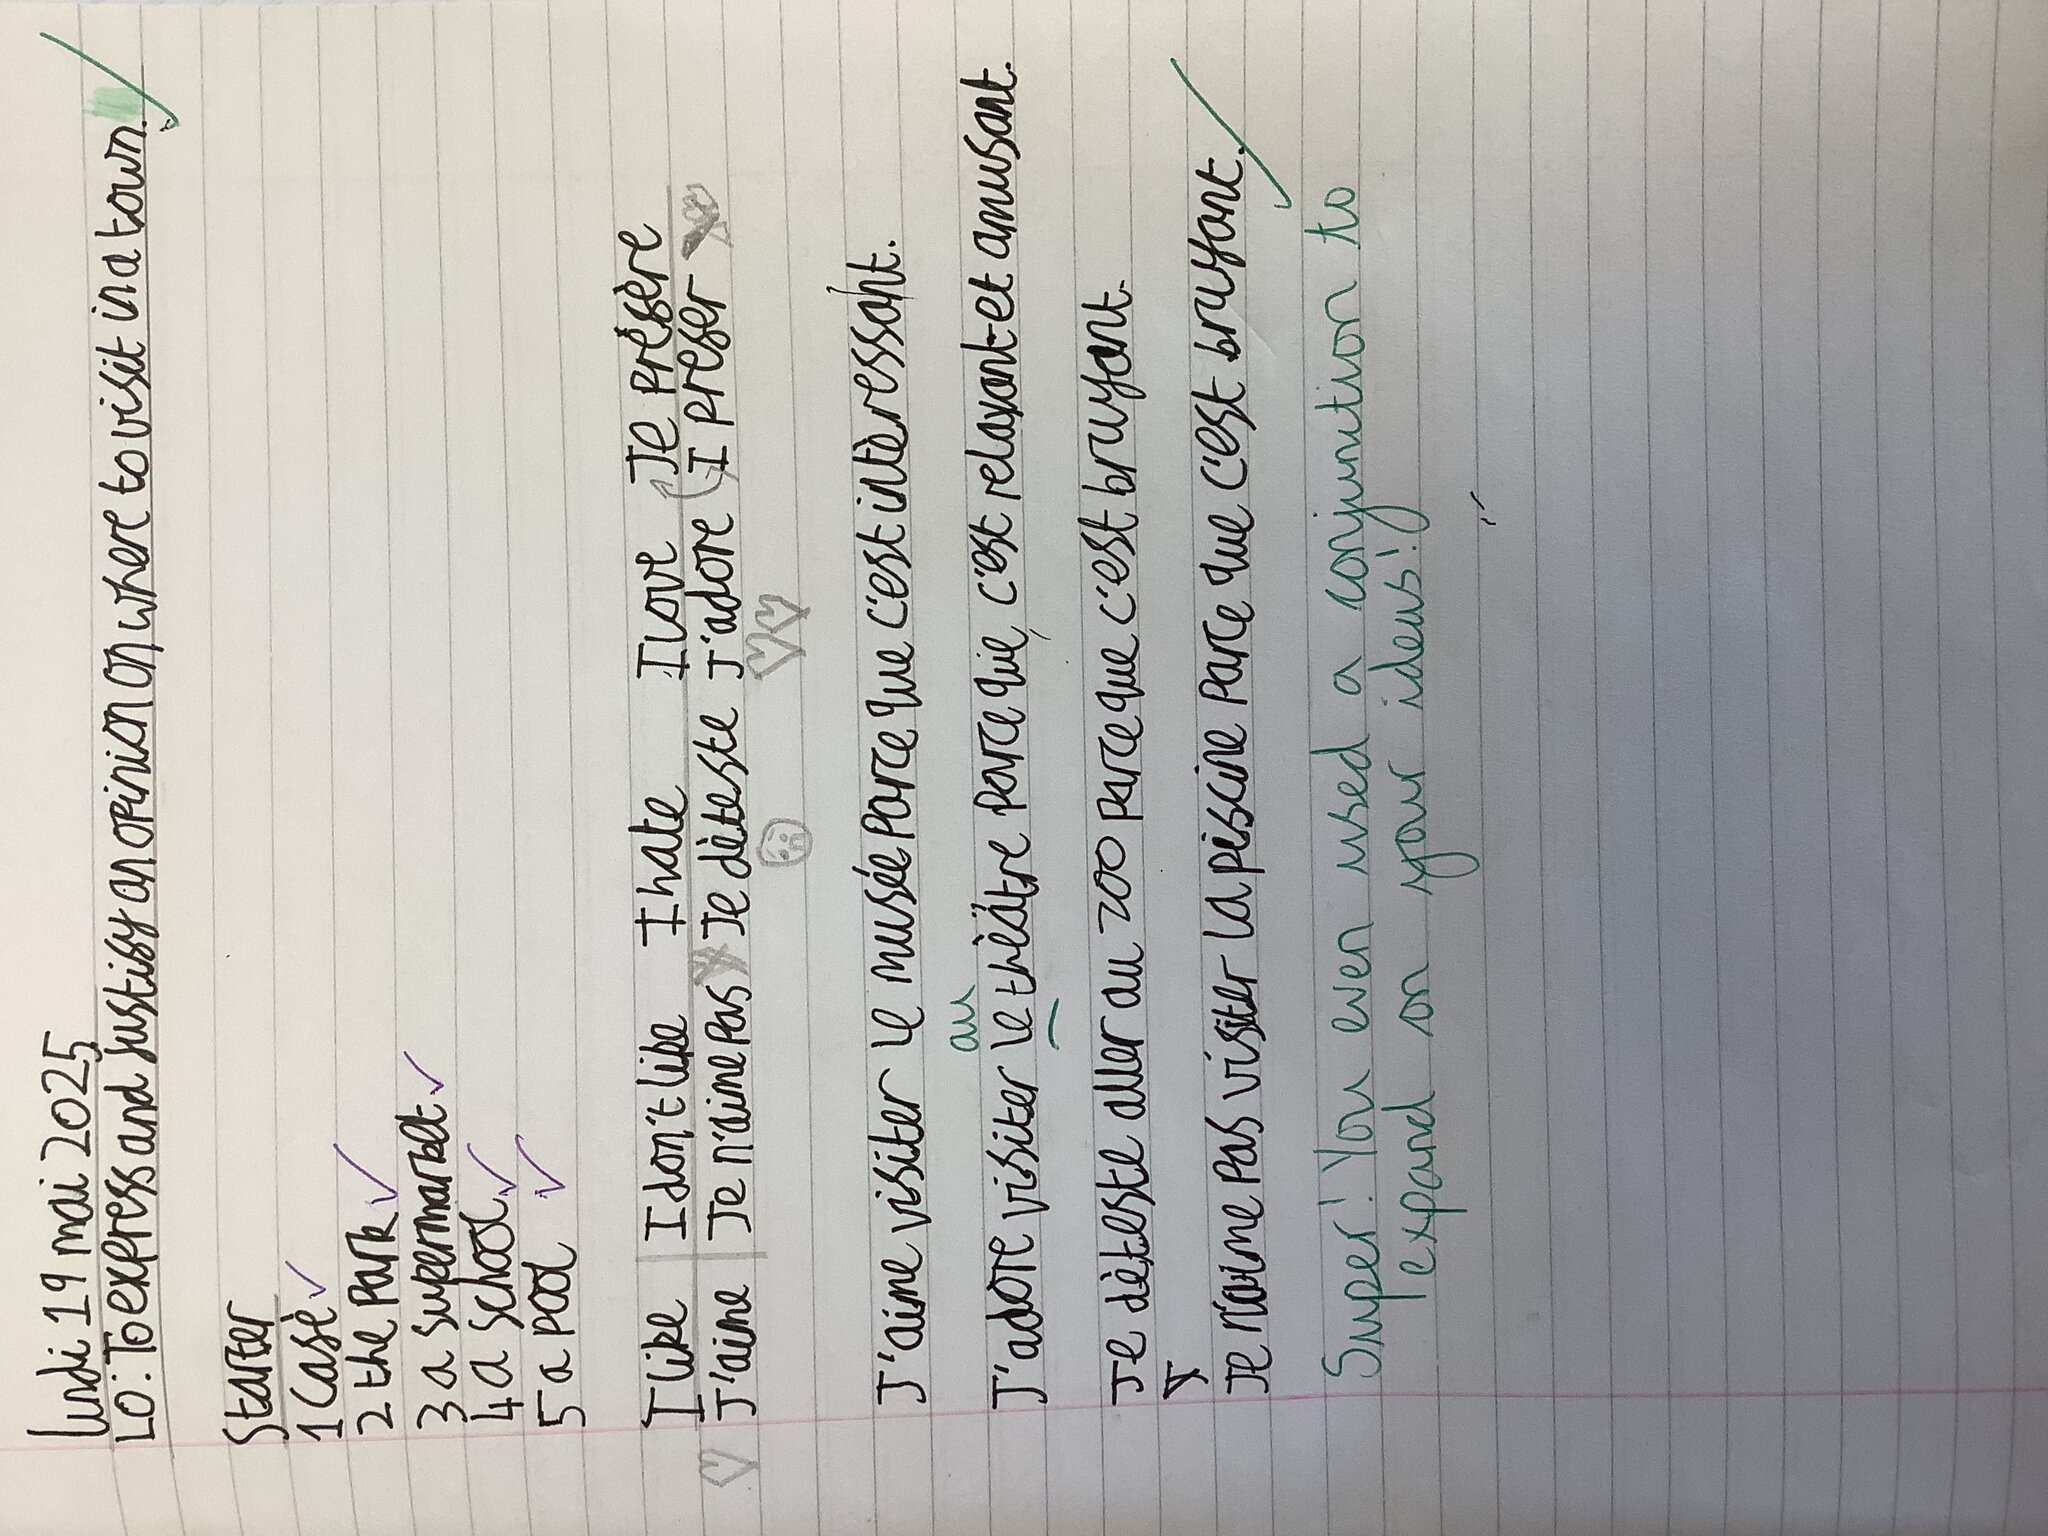 Lundi 19 mai 2025
LO: To express and justify an opinion on where to visit in a town.
Starter
1 Cafè
2 the park
3 a supermarket
4 a school
5 a pool
I like I don't like I hate I love Je préfère
J'aime Je n'aime pas Je dèteste J'adore (I prefer
J'aime visiter le musée parce que c'est intèressant.
au
J'adore visiter le thèâtre parce que, c'est relaxant et amusant.
Je dèteste aller au zoo parce que c'est bruyant.
Je n'aime pas visiter la piscine parce que c'est bruyant.
Super! You even used a conjunction to
expand on your ideas!